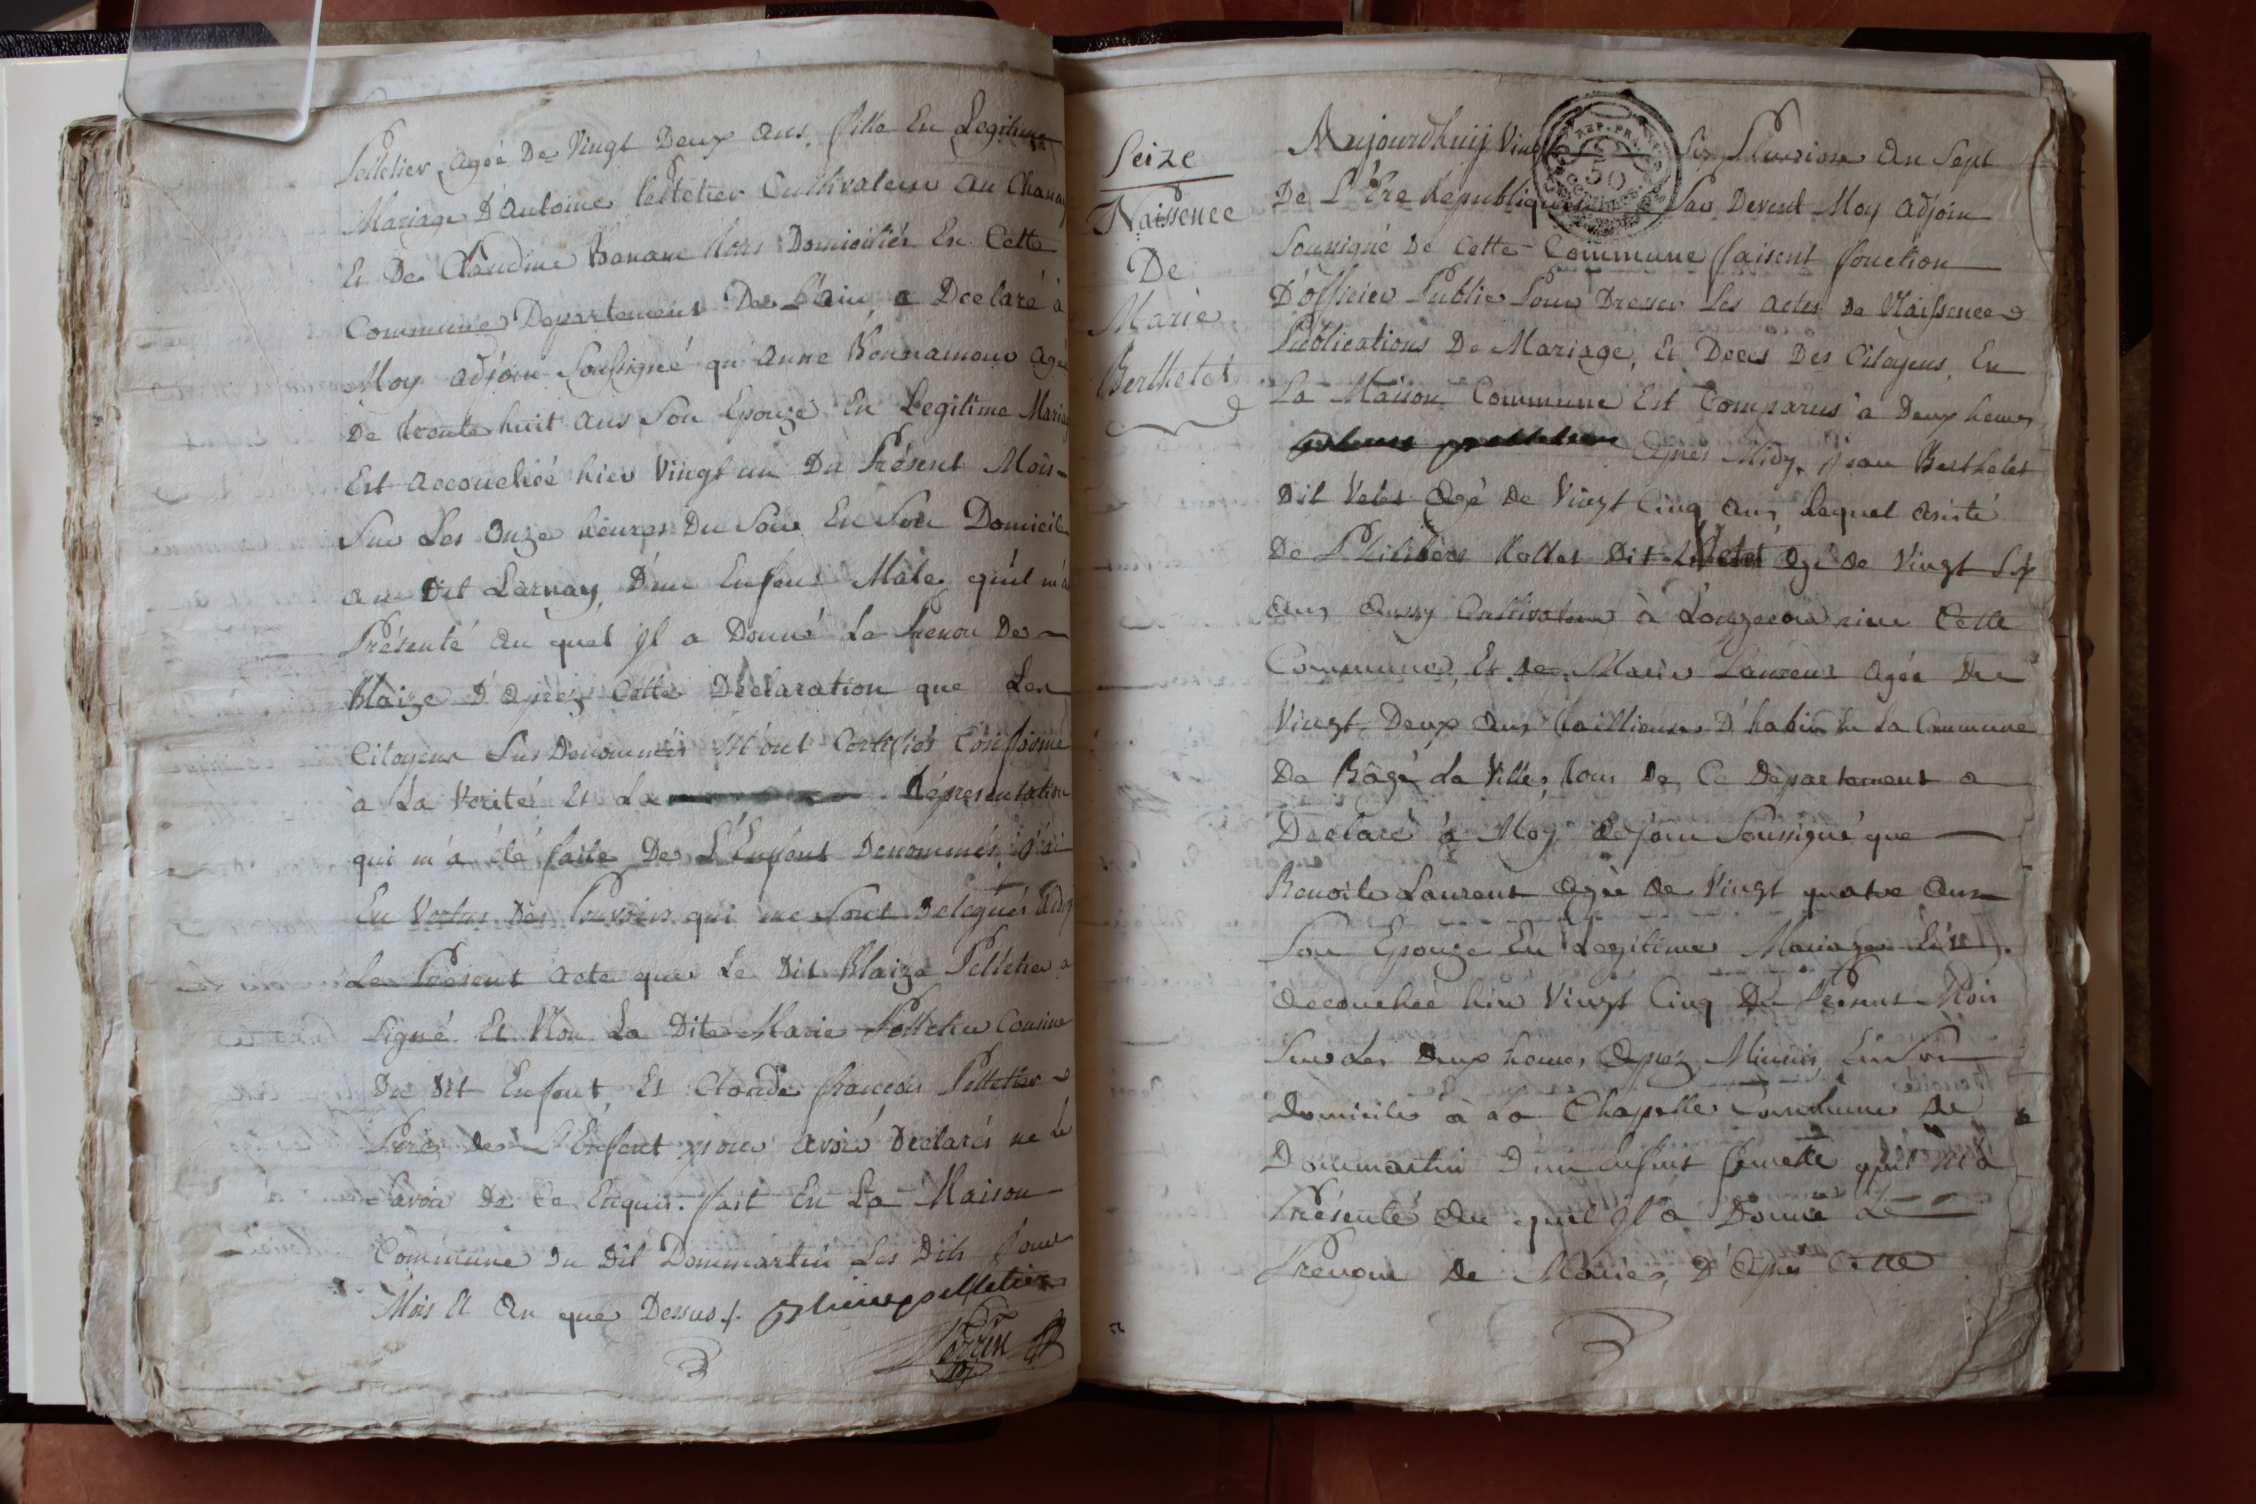 Pelletier, agéé De Vingt Deux ans, fille En Legitime
Mariage D'Antoine Pelletier Cultivateur au Chanay
Et De Claudine Banane tous Domiciliés En Cette
Commune Departement De L'ain, a Declaré à
Moy adjoin Soussigneé qu'anne Bonnamour agé
De trente huit ans Son Epouze En Legitime Mariage
Est accouchéé hier Vingt un Du Présent Mois
Sur Les Onze heures Du Soir En Son Domicile
au Dit Larnay, D'un Enfent Mâle, qu'il m'a
Présenté au quel Jl a Donné Le Prenon De
Blaize D'aprèz Cette Déclaration que Les
Citoyens Sus Denommés M'ont Certifiés Conforme
à La Verité Et La Réprésentation
qui m'a été faite De L'Enfent Denommés, J'ai
En Vertus Des Pouvoirs qui me Sont Delegués
Le Présent acte que Le Dit Blaize Pelletier a
Signé Et Non La Dite Marie Pelletier Cousine
Du Dit Enfent, Et Claude françois Pelletier
Perer de L'Enfent pour avoir Declarés ne Le
Savoir De Ce Enquis. fait En La Maison
Commune Du Dit Dommartin Les Dits Jour
Mois Et An que Dessus
pelletier
Perrin
Seize
Naissence
De
Marie
Berthelet
Aujourdhuij Vingt Six Pluviose An Sept
De L'Ere Republique Par Devent Moy adjoin
Sousigné De Cette Commune faisent fonction
D'Officier Public Pour Dresser Les actes De Naissence
Publications De Mariage, Et Deces Des Citoyens, En
La Maison Commune Est Comparus à Deux heures
Apres Midy, Jean Berthelet
Dit Velet Agé De Vingt Cinq ans, Lequel assisté
De Philibert Dit agé De Vingt Six
ans, Aussy Cultivateur à cette
Commune, Et De Marie Laurent Agée De
Vingt Deux ans tailleuse D'habits En La Commune
De Bâgé La Ville, tous De Ce Département a
Declaré à Moy adjoin Soussigné que
Benoite Laurent Agée De Vingt quatre Ans
Son Epouze En Legitime Mariage
Accouchéé hier Vingt Cinq Du Present Mois
Sur Les Deux heures, Aprez Minuit, En Son
Domicile à La Chapelle Commune De
Dommartin D'un Enfent femelle qu'il M'a
Présenté Au quel Jl a Donné Le
Prenom De Marie, D'Après Cette